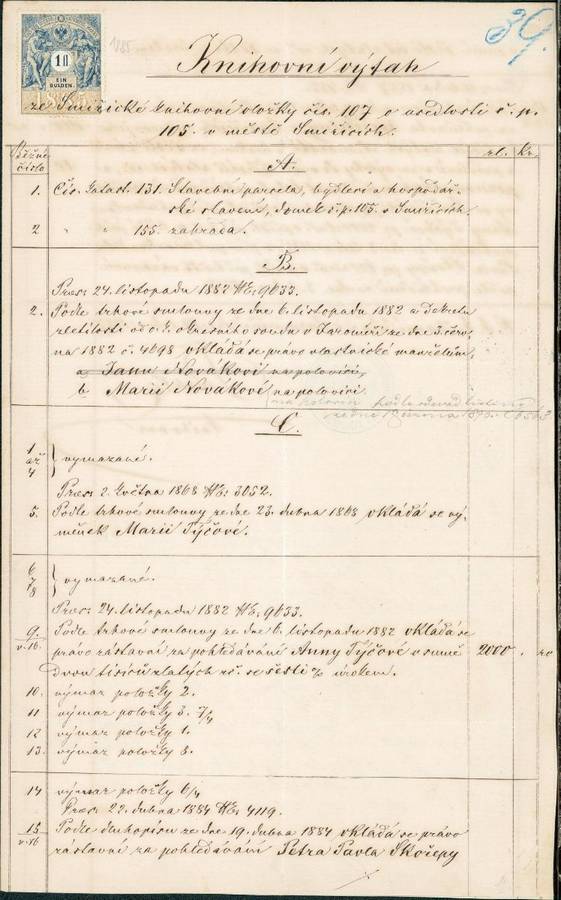 39.
1 fl
EIN GULDEN
1885
Knihovní výtah
ze Smiřické knihovní vložky čís. 107 o usedlosti č. p.
105. v městě Smiřicích.
Běžné číslo
zl. Kr.
A.
1. Čís. katast. 131. Stavební parcela, bydlecí a hospodář-
ské stavení, domek č. p. 105. v Smiřicích.
2 " " 155. zahrada.
B.
Præs: 24. listopadu 1882 No. 9633.
2. Podle trhové smlouvy ze dne 6. listopadu 1882 a dekretu
zletilosti od c. k. okresního soudu v Jaroměři ze dne 3. červ-
na 1882 č. 4698 vkládá se právo vlastnické manželům,
a Janu Novákovi na polovici,
b Marii Novákové na polovici.
C.
1 až 4 } vymazané.
Præs: 2. května 1868 No. 3052.
5. Podle trhové smlouvy ze dne 23. dubna 1868 vkládá se vý-
měnek Marii Týčové.
6 7 8 } vymazané.
Præs: 24. listopadu 1882 No. 9633.
9. Podle trhové smlouvy ze dne 6. listopadu 1882 vkládá se
v. 16. právo zástavní za pohledávání Anny Týčové v sumě 2000
dvou tisíců zlatých rč. se šesti % úrokem.
10. výmaz položky 2.
11 výmaz položky 3. 7/4
12 výmaz položky 1.
13. výmaz položky 8.
14 výmaz položky 6/4
Præs: 22. dubna 1884 No. 4119.
15 Podle dluhopisu ze dne 19. dubna 1884 vkládá se právo
v. 16 zástavní za pohledávání Petra Pavla Skořepy